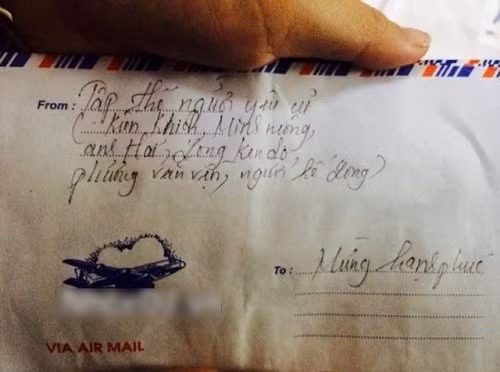 From : Tập thể người yêu cũ
( Kiên Khích, Minh mộng,
anh Hai, Long Kendo,
phường văn vặn, người kế đong)
To : Mừng hạnh phúc
VIA AIR MAIL